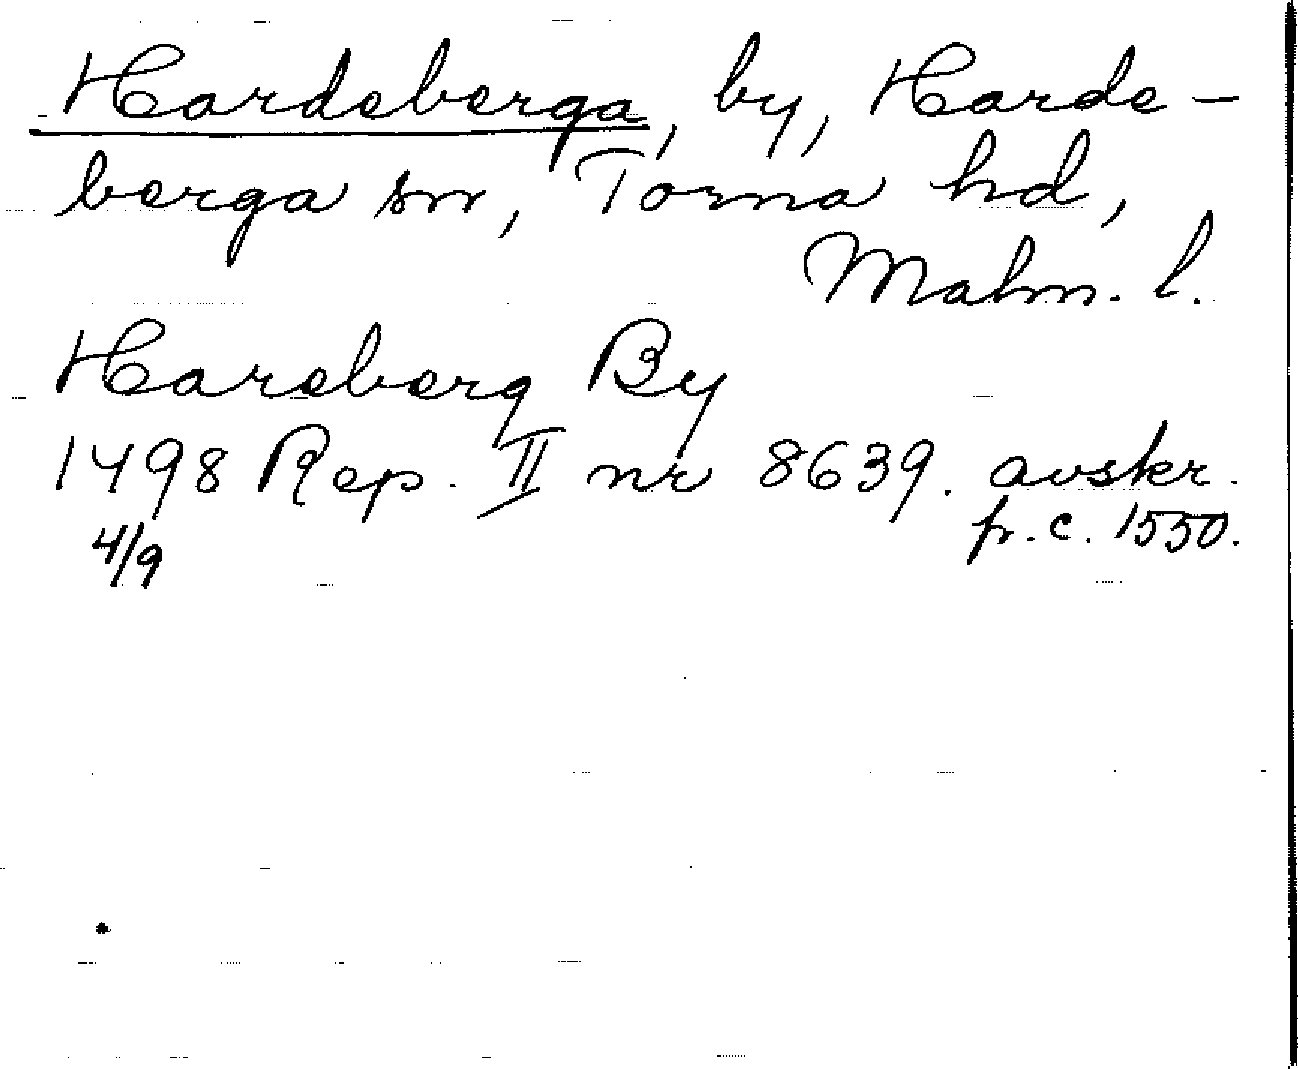 Hardeberga, by, Harde-
berga sn, Torna hd,
Malm. l.
Hareberg By
1498 Rep. II nr 8639. avskr.
fr. c. 1550.
4/9